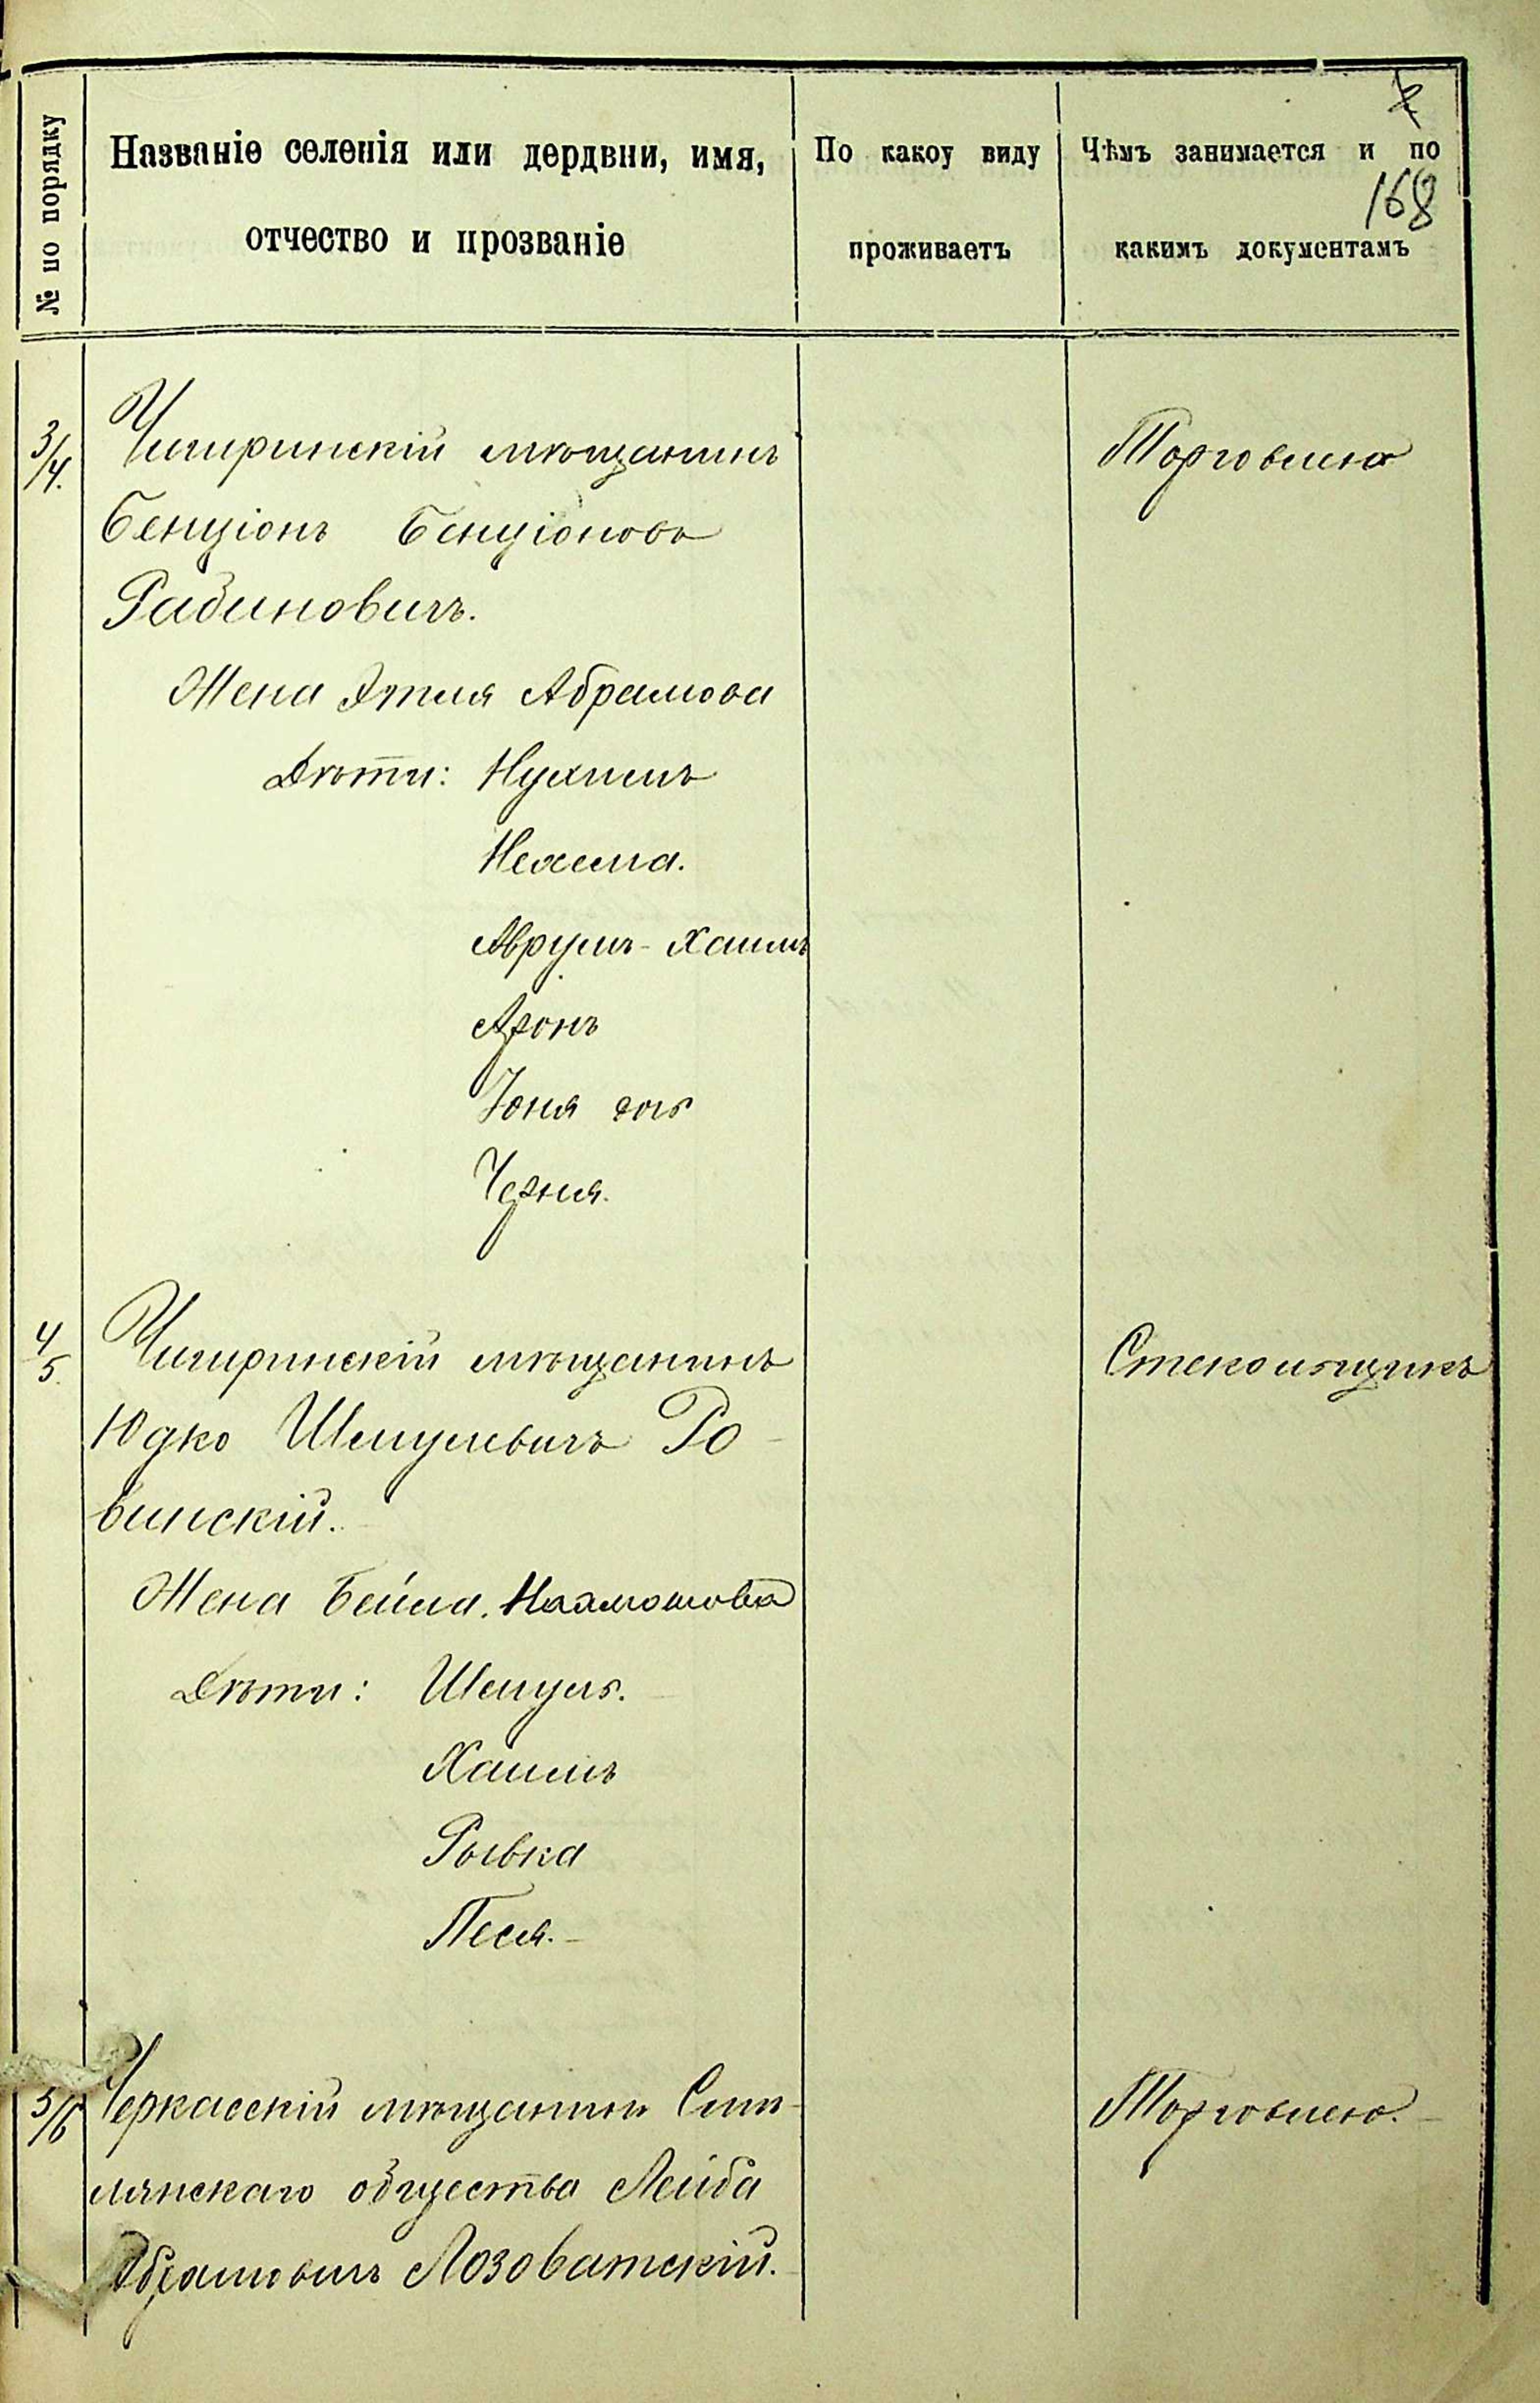 № по порядку
Названіе селенія или дердвни, имя,
отчество и прозваніе
По какоу виду
проживаетъ
Чѣмъ занимается и по
какимъ документамъ
168
3/4.
Чигиринскій мѣщанинъ
Торговлею
Бенціонъ Бенціоновъ
Рабиновичъ.
Жена Этля Абрамова
Дѣти: Нухимъ
Нехема.
Аврумъ-Хаимъ
Аронъ
Іоня
Черня.
4/5.
Чигиринскій мѣщанинъ
Стекольщикъ
Юдко Шмулевичъ Ро-
винскій.
Жена Бейла.
Дѣти: Шмуль.
Хаимъ
Рывка
Песя.
5/6
Черкасскій мѣщанинъ Смѣ-
Торговлею.
лянскаго общества Лейба
Абрамовичъ Лозоватскій.